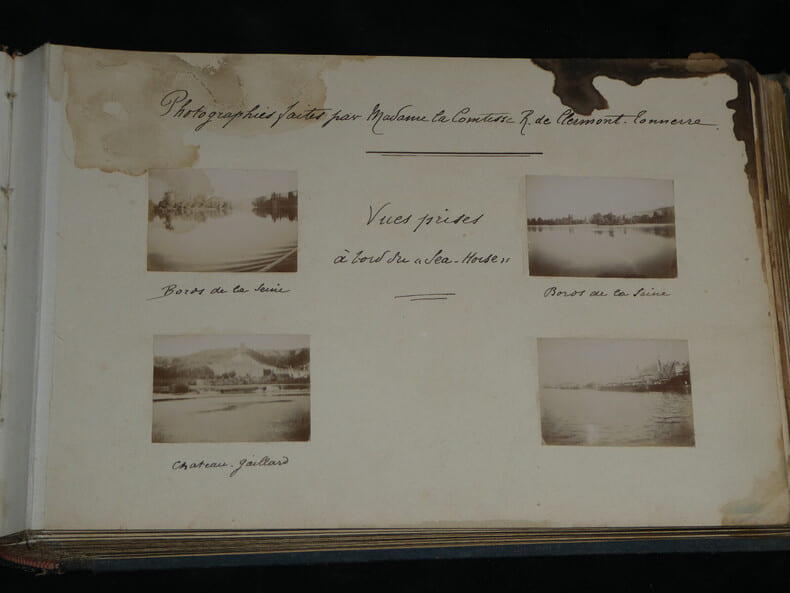 Photographies faites par Madame la Comtesse R. de Clermont-Tonnerre.
Vues prises
à bord du "Sea-Horse"
Bords de la Seine
Bords de la Seine
Chateau-Gaillard